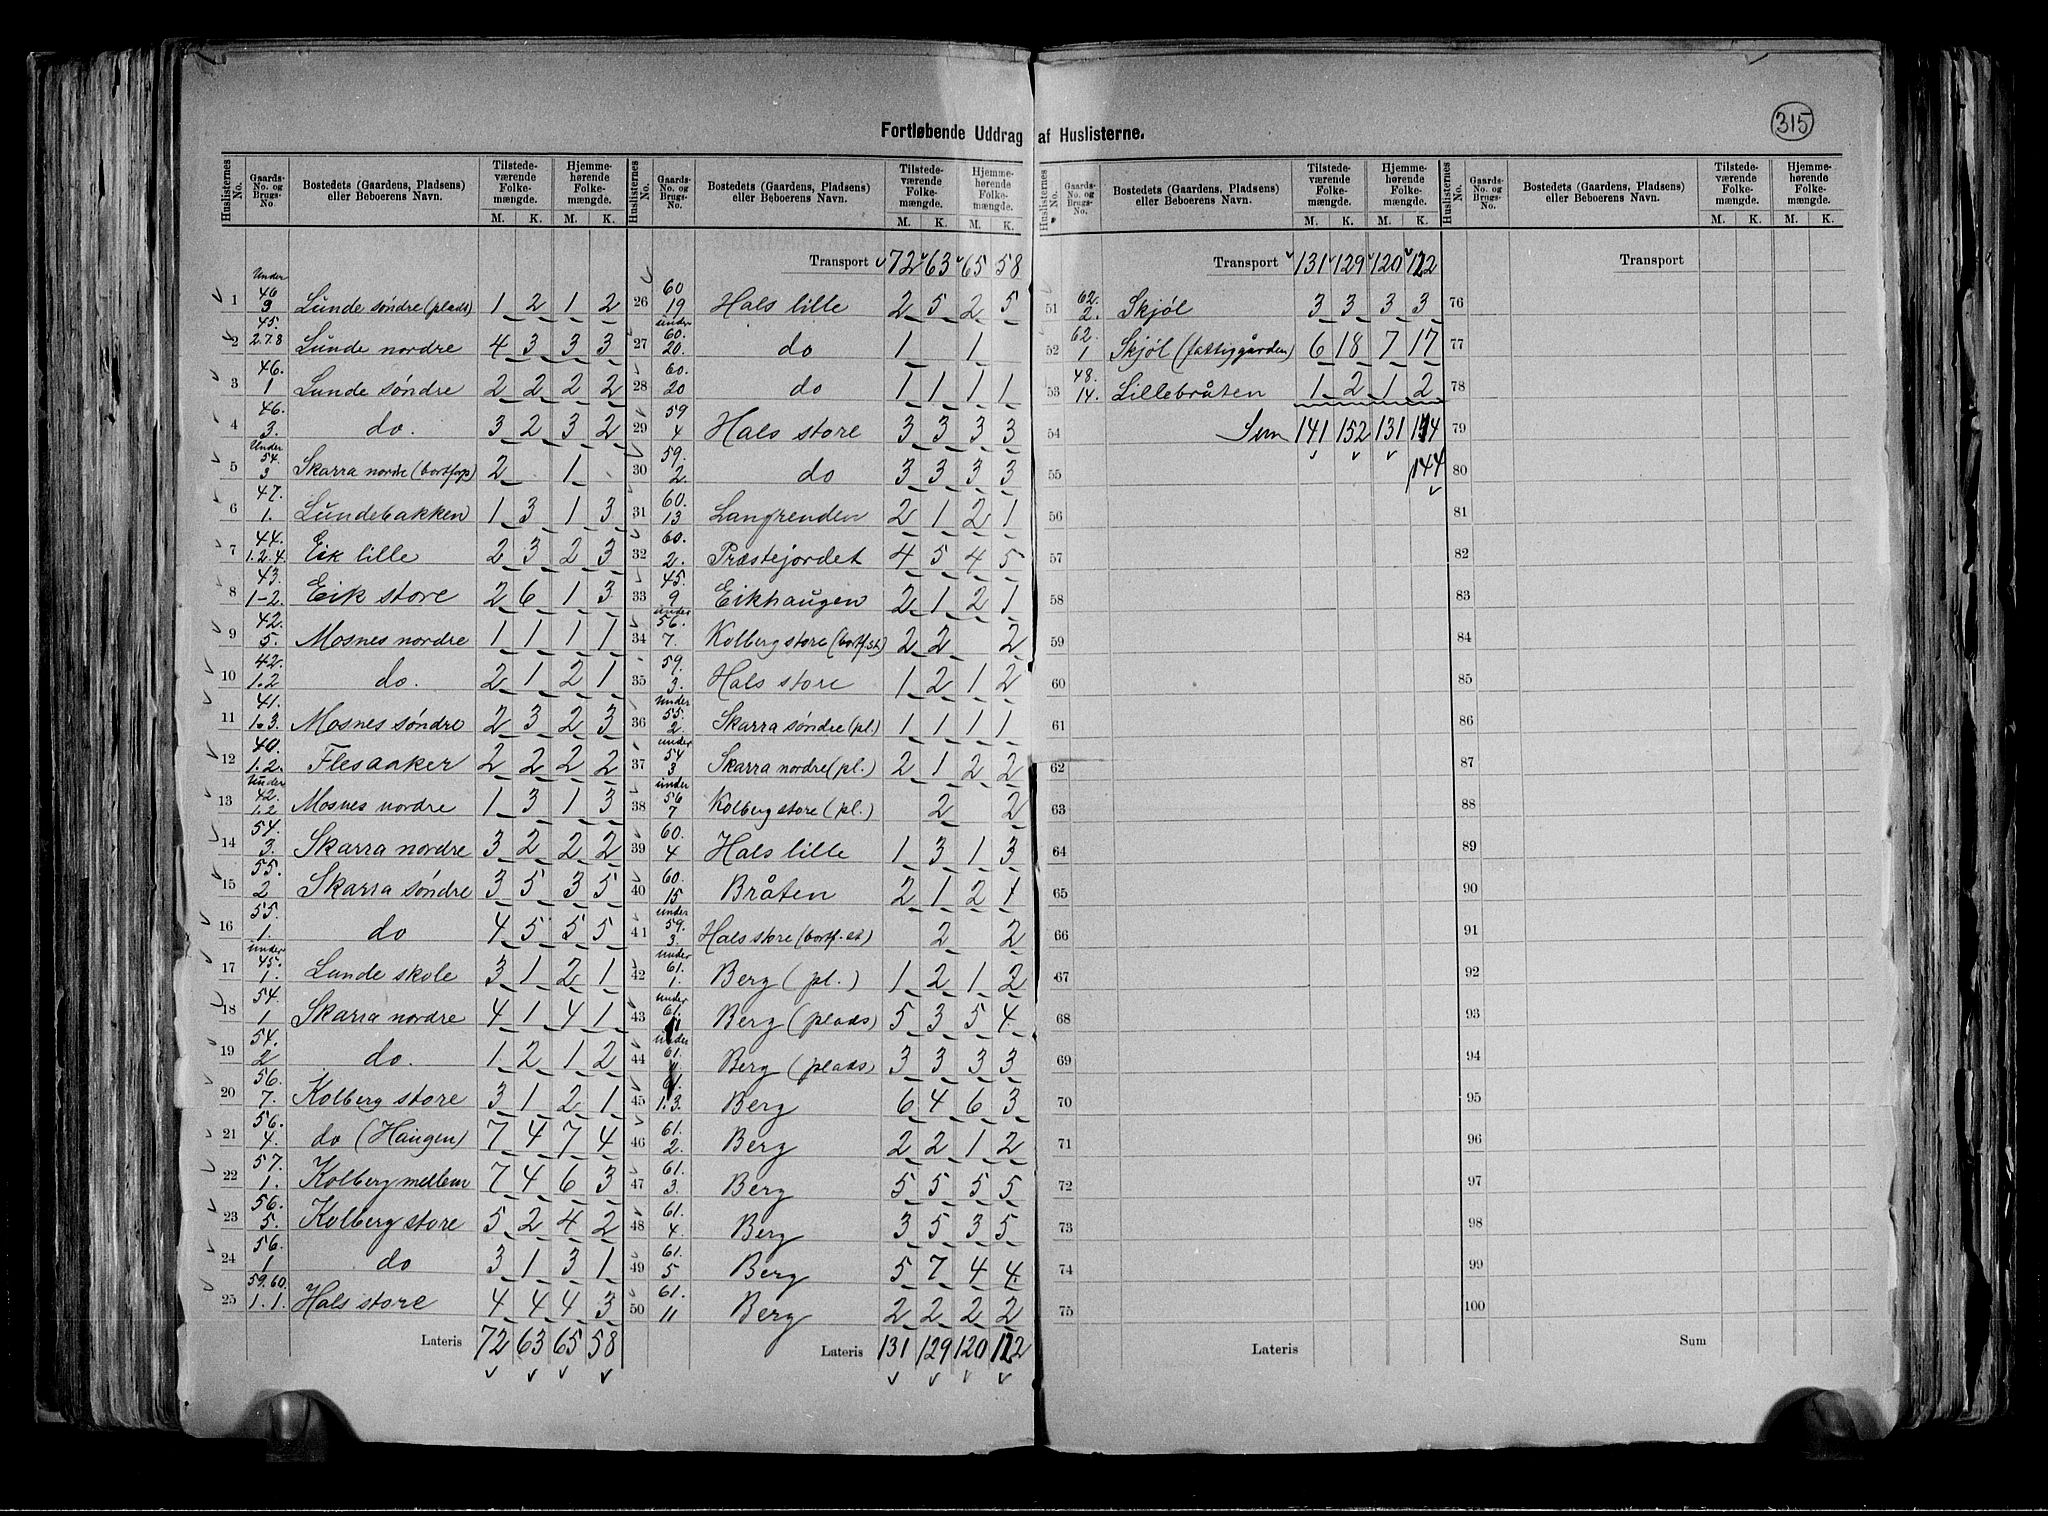 315
Fortløbende Uddrag af Huslisterne.
Huslisternes No. Gaards-No. og Brugs-No. Bostedets (Gaardens, Pladsens) eller Beboerens Navn. Tilstedeværende Folkemængde. M. K. Hjemmehørende Folkemængde. M. K.
1 Under 46 9 Lunde søndre (plads) 1 2 1 2
2 45. 2.7.8 Lunde nordre 4 3 3 3
3 46. 1 Lunde søndre 2 2 2 2
4 46. 3. do. 3 2 3 2
5 Under 54. 3 Skarra nordre (bortforp) 2 1
6 47. 1. Lundebakken 1 3 1 3
7 44. 1.2.4. Eik lille 2 3 2 3
8 43. 1-2. Eik store 2 6 1 3
9 42. 5. Mosnes nordre 1 1 1 1
10 42. 1.2 do. 2 1 2 1
11 41. 1.3. Mosnes søndre 2 3 2 3
12 40. 1.2. Flesaaker 2 2 2 2
13 Under 42. 1.2 Mosnes nordre 1 3 1 3
14 54. 3. Skarra nordre 3 2 2 2
15 55. 2 Skarra søndre 3 5 3 5
16 55. 1. do 4 5 5 5
17 under 45. 1. Lunde skole 3 1 2 1
18 54. 1 Skarra nordre 4 1 4 1
19 54. 2 do. 1 2 1 2
20 56. 7. Kolberg store 3 1 2 1
21 56. 4. do (Haugen) 7 4 7 4
22 57. 1. Kolberg mellem 7 4 6 3
23 56. 5. Kolberg store 5 2 4 2
24 56. 1 do 3 1 3 1
25 59.60. 1.1. Hals store 4 4 4 3
Lateris 72 63 65 58
Huslisternes No. Gaards-No. og Brugs-No. Bostedets (Gaardens, Pladsens) eller Beboerens Navn. Tilstedeværende Folkemængde. M. K. Hjemmehørende Folkemængde. M. K.
Transport 72 63 65 58
26 60 19 Hals lille 2 5 2 5
27 under 60. 20. do 1 1
28 60. 20 do 1 1 1 1
29 59 4 Hals store 3 3 3 3
30 59. 2. do 3 3 3 3
31 60. 13 Langrenden 2 1 2 1
32 60. 2. Præstejordet 4 5 4 5
33 45. 9 Eikhaugen 2 1 2 1
34 under 56. 7. Kolberg store (bortf.st) 2 2 2
35 59. 3. Hals store 1 2 1 2
36 Under 55. 2. Skarra søndre (pl.) 1 1 1 1
37 under 54 3 Skarra nordre (pl.) 2 1 2 2
38 under 56 7 Kolberg store (pl.) 2 2
39 60. 4 Hals lille 1 3 1 3
40 60. 15 Bråten 2 1 2 1
41 under 59. 3. Hals store (bortf. st) 2 2
42 under 61. 1. Berg (pl.) 1 2 1 2
43 under 61. 11 Berg (plads) 5 3 5 4
44 under 61. 11 Berg (plads) 3 3 3 3
45 61. 1.3. Berg 6 4 6 3
46 61. 2. Berg 2 2 1 2
47 61. 3. Berg 5 5 5 5
48 61. 4. Berg 3 5 3 5
49 61. 5 Berg 5 7 4 4
50 61. 11 Berg 2 2 2 2
Lateris 131 129 120 112
Huslisternes No. Gaards-No. og Brugs-No. Bostedets (Gaardens, Pladsens) eller Beboerens Navn. Tilstedeværende Folkemængde. M. K. Hjemmehørende Folkemængde. M. K.
Transport 131 129 120 122
51 62. 2. Skjøl 3 3 3 3
52 62. 1 Skjøl (fattiggården) 6 18 7 17
53 48. 14. Lillebråten 1 2 1 2
54 Sum 141 152 131 134
55 144
56
57
58
59
60
61
62
63
64
65
66
67
68
69
70
71
72
73
74
75
Lateris
Huslisternes No. Gaards-No. og Brugs-No. Bostedets (Gaardens, Pladsens) eller Beboerens Navn. Tilstedeværende Folkemængde. M. K. Hjemmehørende Folkemængde. M. K.
Transport
76
77
78
79
80
81
82
83
84
85
86
87
88
89
90
91
92
93
94
95
96
97
98
99
100
Sum